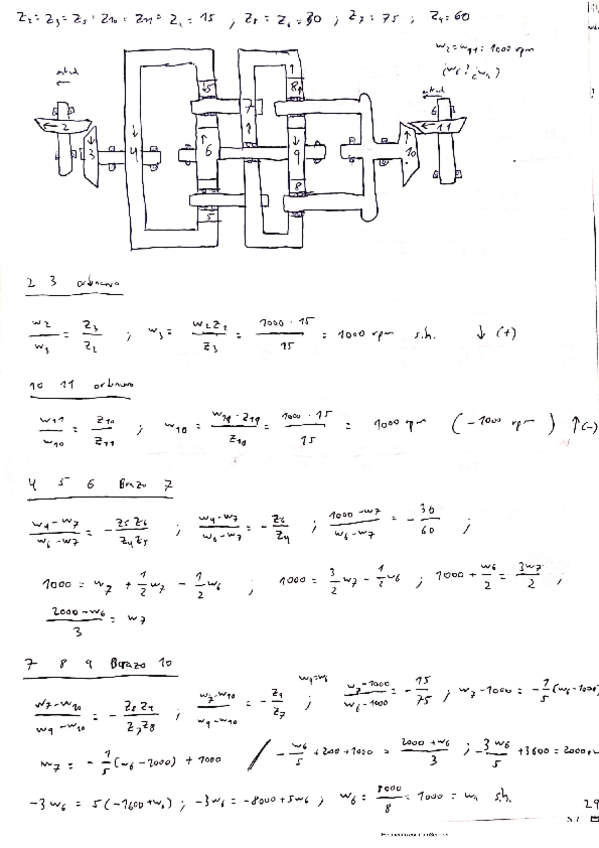 Z₂ = Z₃ = Z₅ = Z₁₀ = Z₁₁ = Z₉ = 15 ; Z₈ = Z₆ = 30 ; Z₇ = 75 ; Z₄ = 60
w₂ = w₁₁ = 1000 rpm
2 3 4 5 6 7 8 9 10 11 6 5 8
2 3 ordinario
w₂/w₃ = Z₃/Z₂ ; w₃ = w₂Z₂/Z₃ = 1000 · 15/15 = 1000 rpm s.h. ↓ (+)
10 11 ordinario
w₁₁/w₁₀ = Z₁₀/Z₁₁ ; w₁₀ = w₁₁ · Z₁₁/Z₁₀ = 1000 · 15/15 = 1000 rpm (-1000 rpm) ↑ (-)
4 5 6 Brazo 7
w₄-w₇/w₆-w₇ = - Z₅Z₆/Z₄Z₅ ; w₄-w₇/w₆-w₇ = - Z₆/Z₄ ; 1000-w₇/w₆-w₇ = - 30/60 ;
1000 = w₇ + 1/2 w₇ - 1/2 w₆ ; 1000 = 3/2 w₇ - 1/2 w₆ ; 1000 + w₆/2 = 3w₇/2 ;
2000-w₆/3 = w₇
7 8 9 Brazo 10
w₉=w₆
w₇-w₁₀/w₉-w₁₀ = - Z₈Z₉/Z₇Z₈ ; w₇-w₁₀/w₉-w₁₀ = - Z₉/Z₇ ; w₇-1000/w₆-1000 = - 15/75 ; w₇-1000 = - 1/5 (w₆-1000)
w₇ = - 1/5 (w₆-1000) + 1000 / - w₆/5 + 200 + 1000 = 2000+w₆/3 ; - 3w₆/5 + 3600 = 2000+w
-3w₆ = 5(-1600+w₆) ; -3w₆ = -8000+5w₆ ; w₆ = 8000/8 = 1000 = w₉ s.h.
29